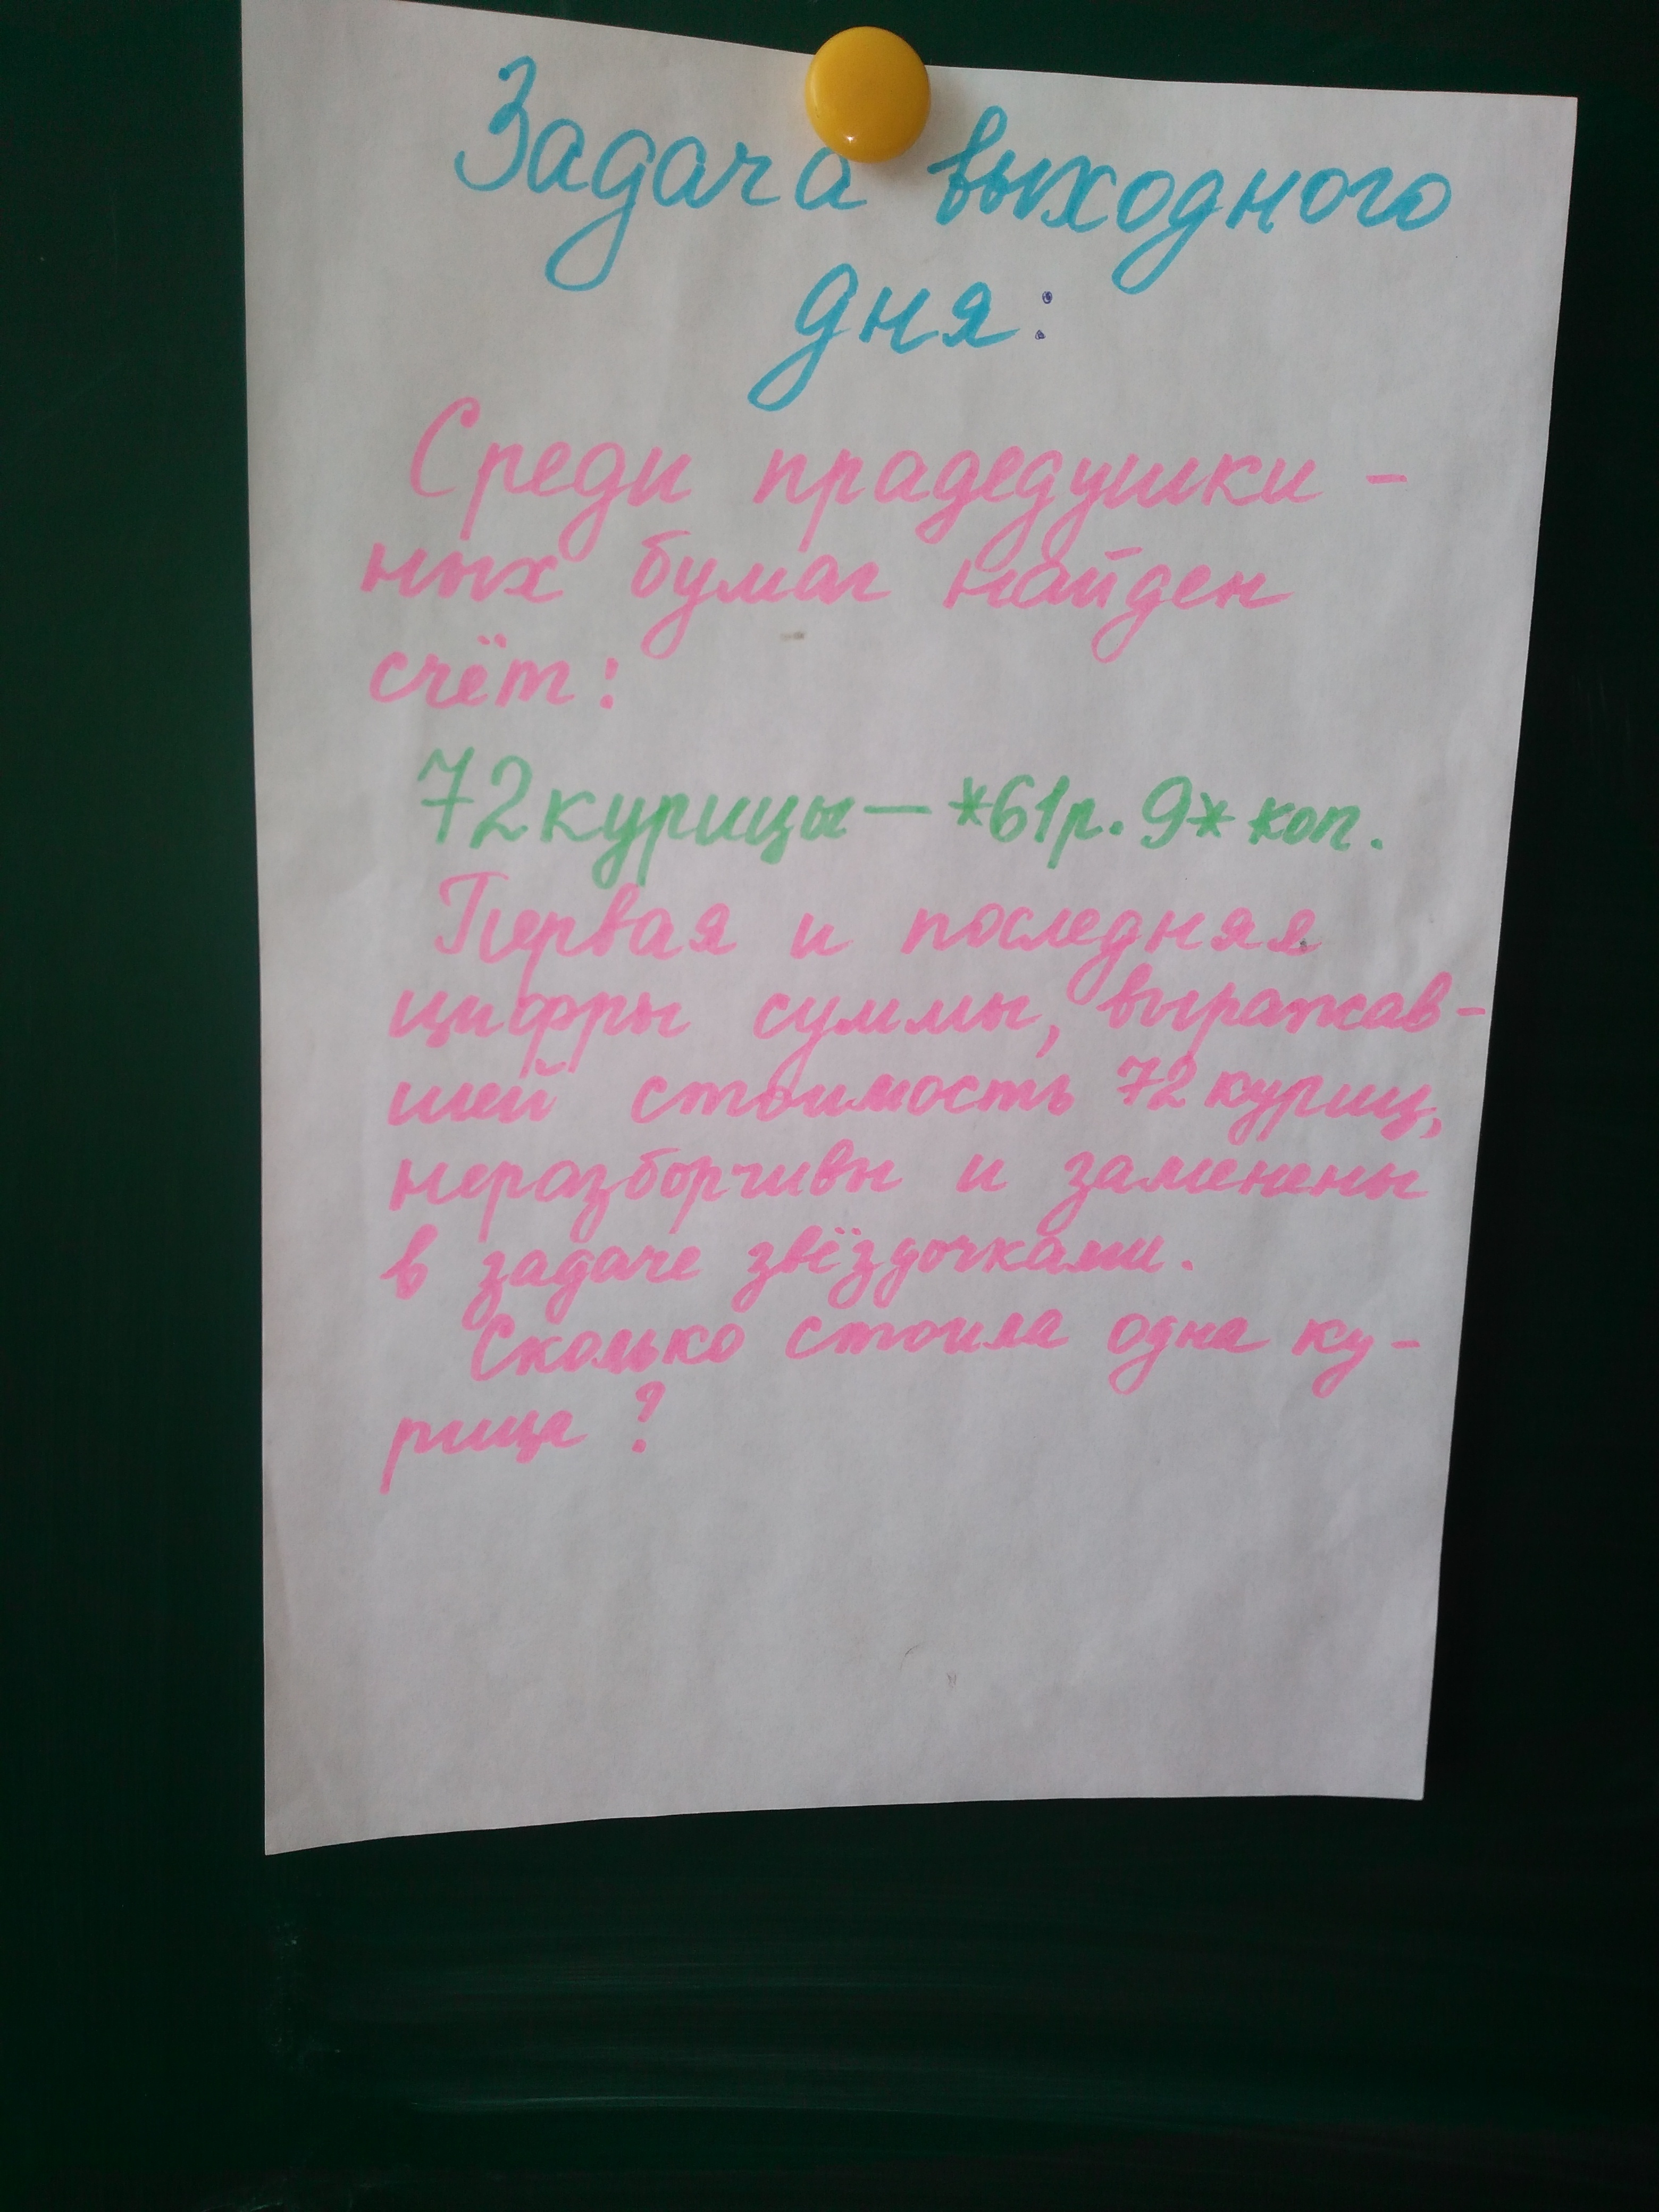 Задача выходного
дня:
Среди прадедушки-
ных бумаг найден
счёт:
72 курицы — *61р. 9* коп.
Первая и последняя
цифры суммы, выражав-
шей стоимость 72 куриц,
неразборчивы и заменены
в задаче звёздочками.
Сколько стоила одна ку-
рица?